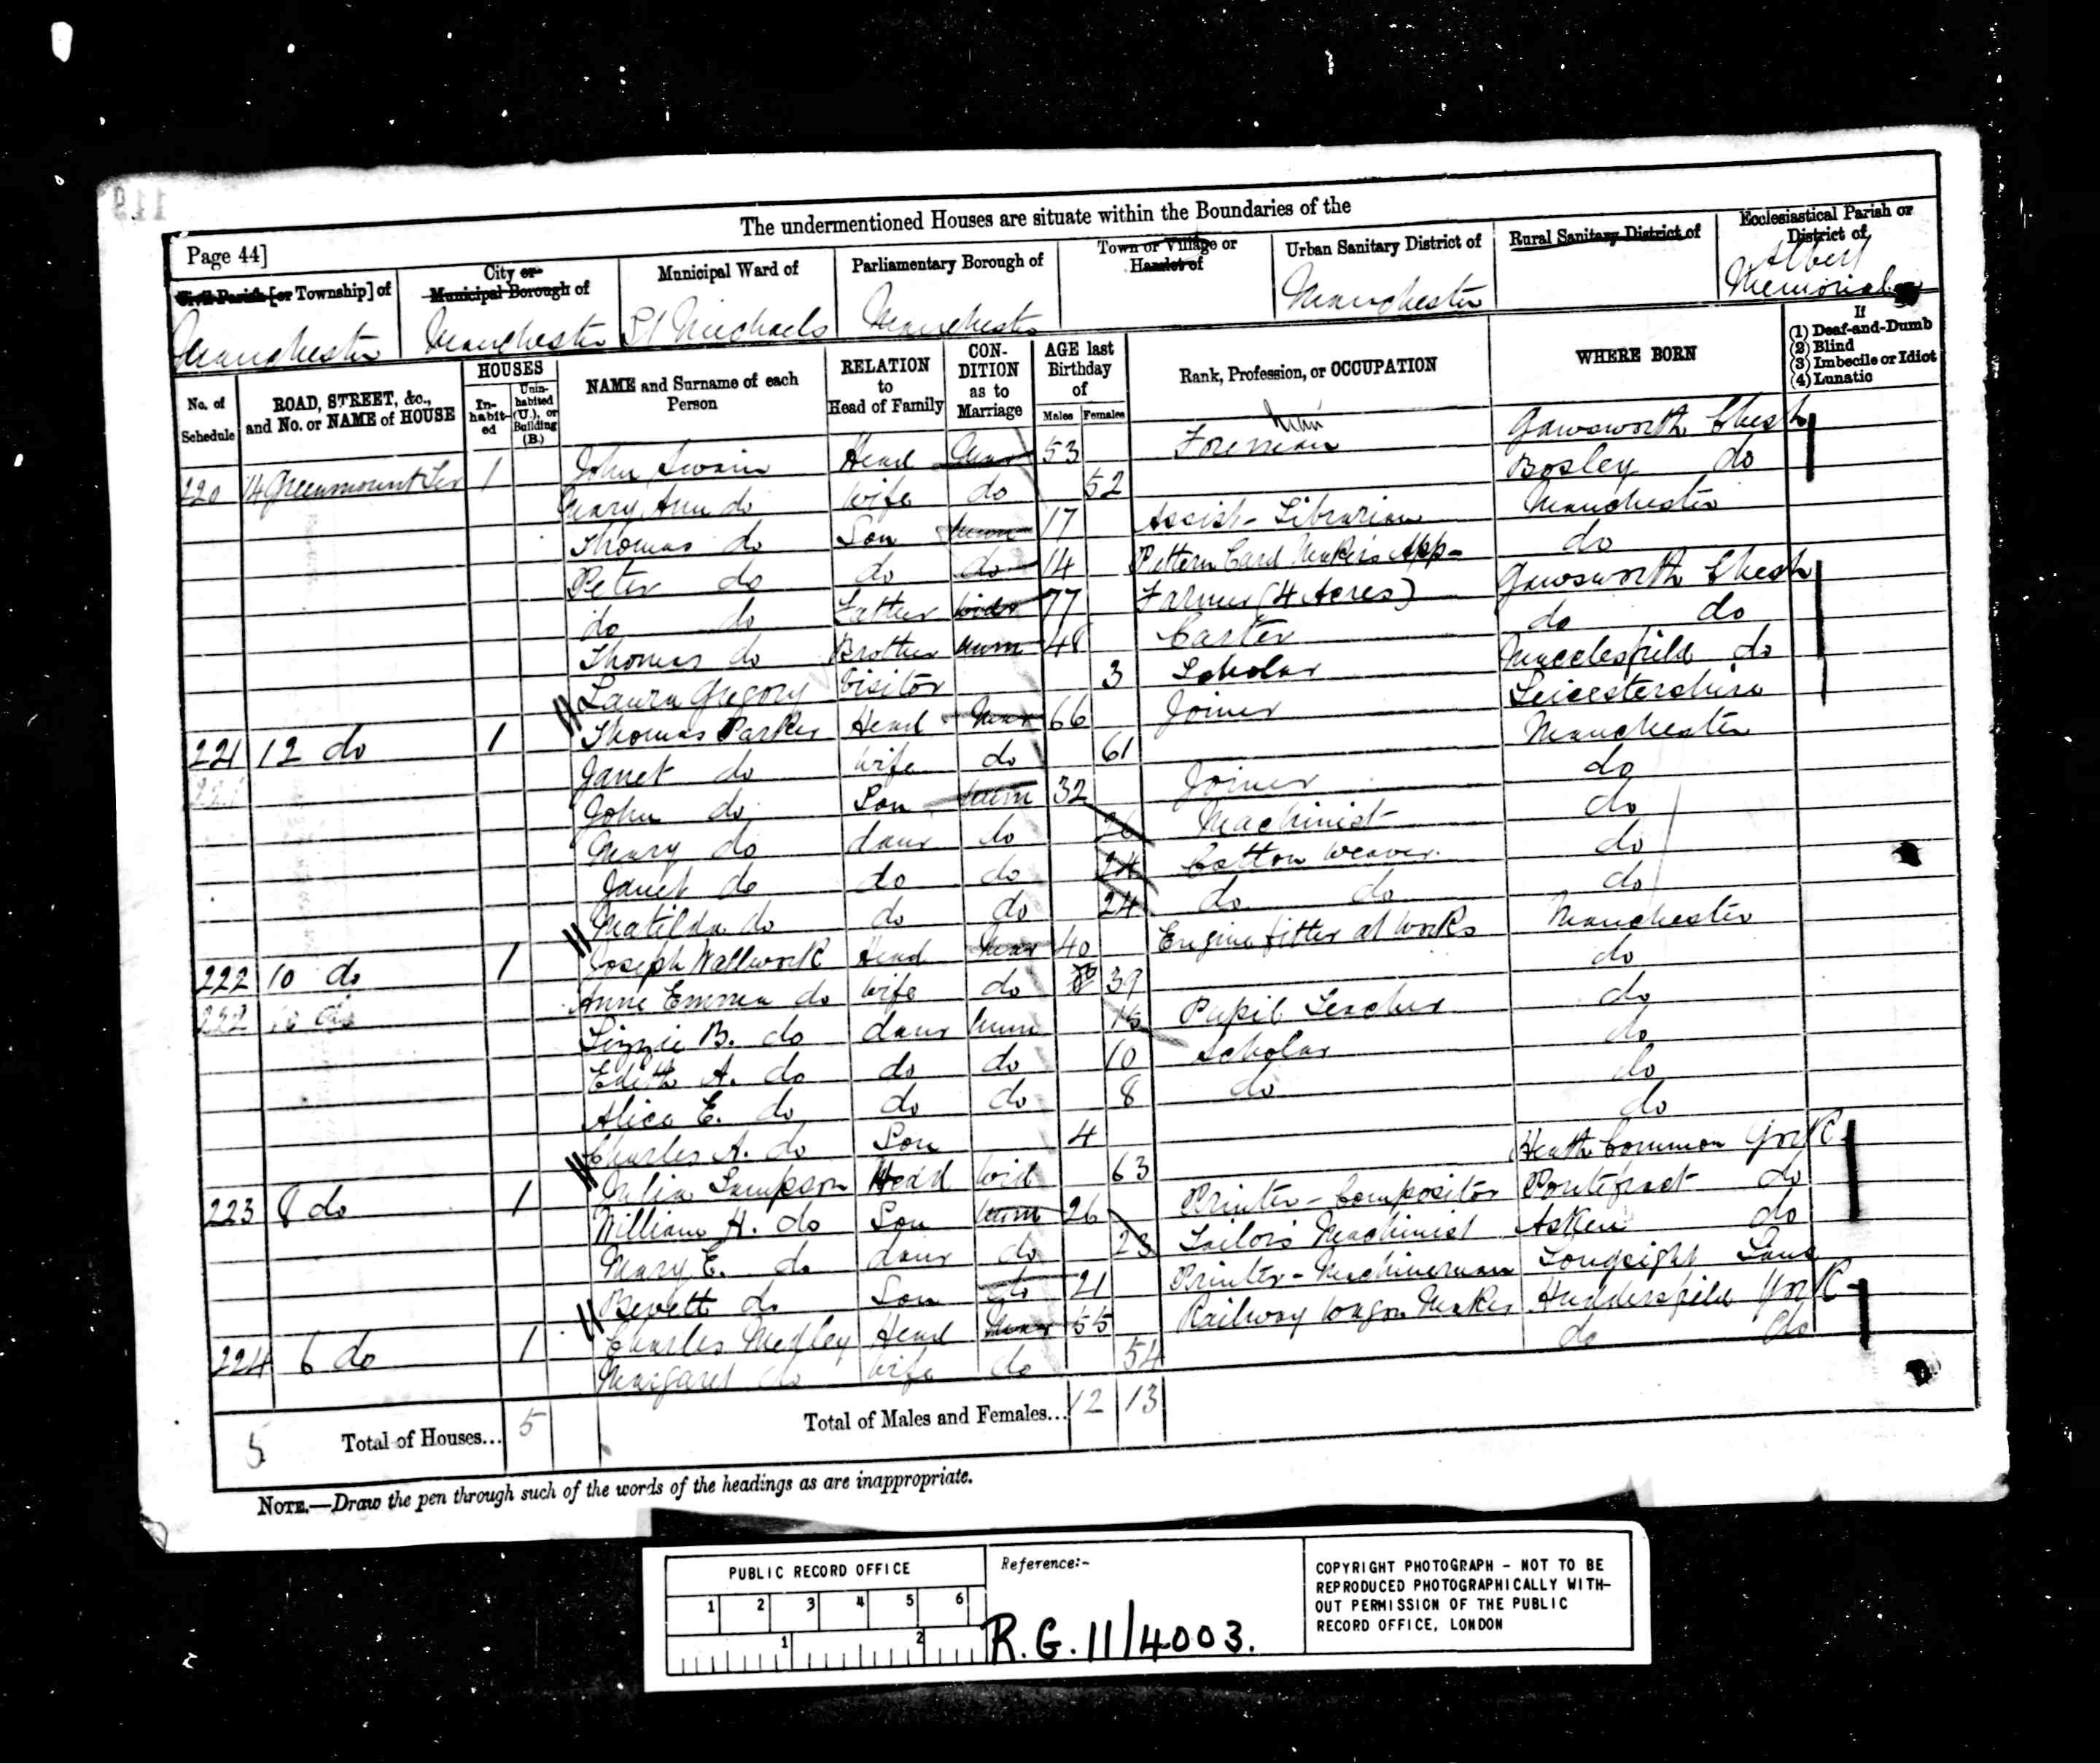 119
The undermentioned Houses are situate within the Boundaries of the
Page 44]
Civil Parish [or Township] of
Manchester
City or Municipal Borough of
Manchester
Municipal Ward of
St Michaels
Parliamentary Borough of
Manchester
Town or Village or Hamlet of
Urban Sanitary District of
Manchester
Rural Sanitary District of
Ecclesiastical Parish or District of
Albert Memorial
No. of Schedule | ROAD, STREET, &c., and No. or NAME of HOUSE | HOUSES In-habit-ed | Unin-habited (U.), or Building (B.) | NAME and Surname of each Person | RELATION to Head of Family | CON-DITION as to Marriage | AGE last Birthday of Males Females | Rank, Profession, or OCCUPATION | WHERE BORN | If (1) Deaf-and-Dumb (2) Blind (3) Imbecile or Idiot (4) Lunatic
220 14 Greenmount Ter 1 John Swain Head Mar 53 Foreman Gawsworth Chesh
Mary Ann do Wife do 52 Bosley do
Thomas do Son Unm 17 Assist- Librarian Manchester
Peter do do do 14 Pattern Card Maker's App- do
do do Father Widr 77 Farmer (4 Acres) Gawsworth Chesh
Thomas do Brother Unm 48 Carter do do
Laura Gregory Visitor 3 Scholar Macclesfield do
221 12 do 1 Thomas Parker Head Mar 66 Joiner Leicestershire
Janet do Wife do 61 Manchester
John do Son Unm 32 Joiner do
Mary do daur do 26 Machinist do
Janet do do do 24 Cotton Weaver do
Matilda do do do 24 do do do
222 10 do 1 Joseph Wallwork Head Mar 40 Engine fitter at Works Manchester
222 10 do Anne Emma do Wife do 39 do
Lizzie B. do daur Unm 15 Pupil Teacher do
Edith A. do do do 10 Scholar do
Alice E. do do do 8 do do
Charles A. do Son 4 do
223 8 do 1 Julia Sampson Head Wid 63 Heath Common York
William H. do Son Unm 26 Printer-Compositor Pontefract do
Mary E. do daur do 23 Tailors Machinist Asken do
Bevett do Son do 21 Printer-Machineman Longsight Lanc
224 6 do 1 Charles Medley Head Mar 55 Railway Wagon Maker Huddersfield York
Margaret do Wife do 54 do do
5 Total of Houses... 5 Total of Males and Females... 12 13
NOTE.—Draw the pen through such of the words of the headings as are inappropriate.
PUBLIC RECORD OFFICE
1 2 3 4 5 6
1 2
Reference:-
R.G. 11/4003.
COPYRIGHT PHOTOGRAPH - NOT TO BE
REPRODUCED PHOTOGRAPHICALLY WITH-
OUT PERMISSION OF THE PUBLIC
RECORD OFFICE, LONDON